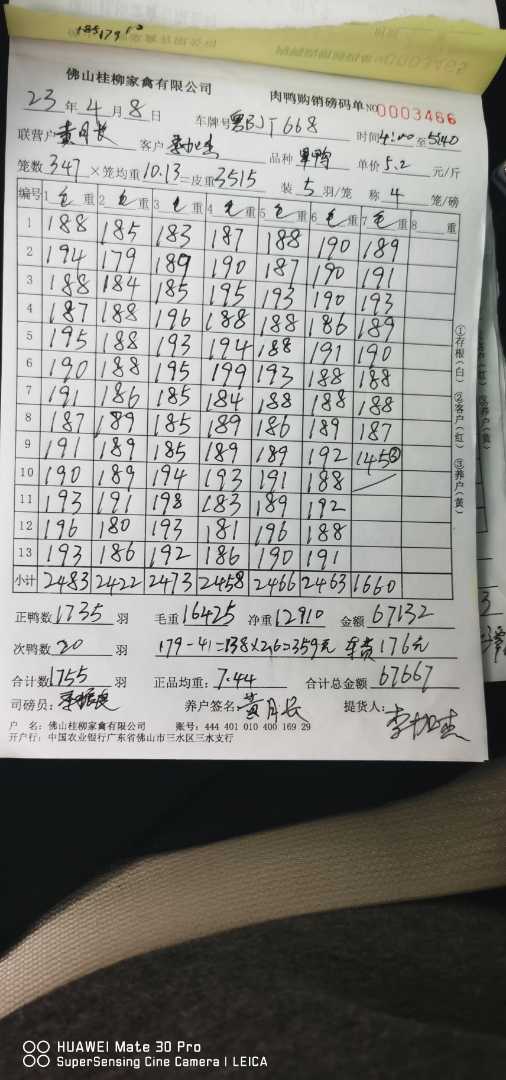 185 179
佛山桂柳家禽有限公司
肉鸭购销磅码单 NO0003466
23年4月8日 车牌号粤BJT668 时间4:00至5:40
联营户黄月长 客户 品种 单价5.2元/斤
笼数347×笼均重10.13=皮重3515 装5羽/笼 称4笼/磅
编号 1毛重 2毛重 3毛重 4毛重 5毛重 6毛重 7毛重 8 重
1 188 185 183 187 188 190 189
2 194 179 189 190 187 190 191
3 188 184 185 195 193 190 193
4 187 188 196 188 188 186 189
5 195 188 193 194 188 191 190
6 190 188 195 199 193 188 188
7 191 186 185 184 188 188 188
8 187 189 185 189 186 189 187
9 191 189 185 189 189 192 145③
10 190 189 194 193 191 188
11 193 191 198 183 189 192
12 196 180 193 181 196 188
13 193 186 192 186 190 191
小计 2483 2422 2473 2458 2466 2463 1660
正鸭数1735羽 毛重16425 净重12910 金额67132
次鸭数20羽 179-41=138×2.6=359元 车费176元
合计数1755羽 正品均重:7.44 合计总金额67667
司磅员: 养户签名:黄月长 提货人:
户 名:佛山桂柳家禽有限公司 账号:444 401 010 400 169 29
开户行:中国农业银行广东省佛山市三水区三水支行
①存根(白) ②客户(红) ③养户(黄)
HUAWEI Mate 30 Pro
SuperSensing Cine Camera | LEICA